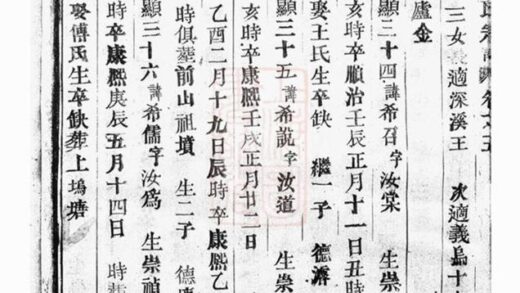 三女長適深溪王 次適義烏十
盧金
顯三十四諱希召字汝棠 生崇
亥時卒順治壬辰正月十一日丑時
娶王氏生卒缺 繼一子 德濟
顯三十五諱希說字汝道 生崇
亥時卒康熙壬戌正月廿二日
乙酉二月十九日辰時卒康熙乙
時俱葬前山祖墳 生二子 德
顯三十六諱希儒字汝爲 生崇禎
時卒康熙庚辰五月十四日 時
娶傅氏生卒缺葬上塢塘